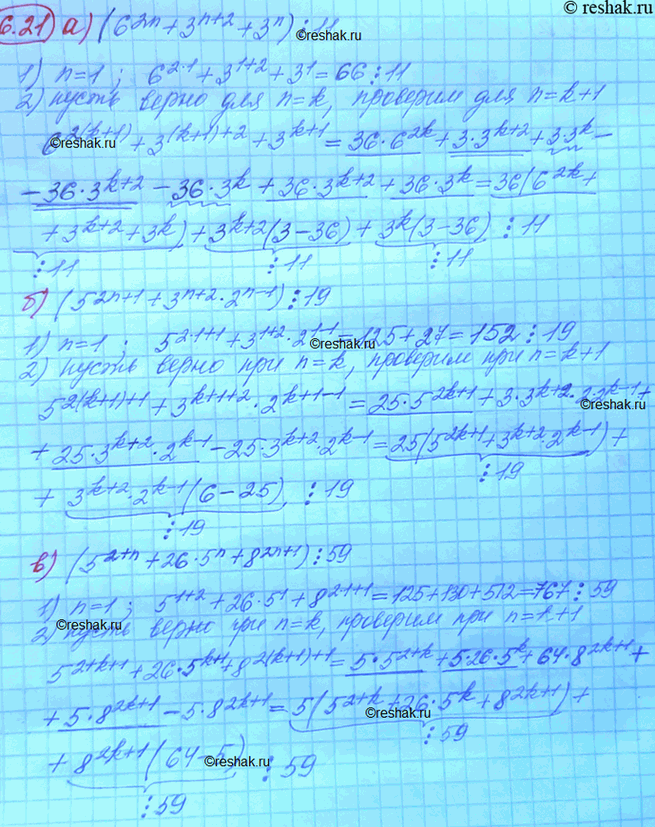 © reshak.ru
6.21) а) (6^{2n} + 3^{n+2} + 3^n) ⋮ 11
©reshak.ru
1) n=1 ; 6^{2·1} + 3^{1+2} + 3^1 = 66 ⋮ 11
2) пусть верно для n=k, проверим для n=k+1
6^{2(k+1)} + 3^{(k+1)+2} + 3^{k+1} = 36·6^{2k} + 3·3^{k+2} + 3·3^k −
©reshak.ru
− 36·3^{k+2} − 36·3^k + 36·3^{k+2} + 36·3^k = 36(6^{2k} +
+ 3^{k+2} + 3^k) + 3^{k+2}(3−36) + 3^k(3−36) ⋮ 11
⋮ 11 ⋮ 11 ⋮ 11
б) (5^{2n+1} + 3^{n+2}·2^{n−1}) ⋮ 19
1) n=1 ; 5^{2·1+1} + 3^{1+2}·2^{1−1} = 125 + 27 = 152 ⋮ 19
2) пусть верно при n=k, проверим при n=k+1
5^{2(k+1)+1} + 3^{k+1+2}·2^{k+1−1} = 25·5^{2k+1} + 3·3^{k+2}·2·2^{k−1} +
©reshak.ru
+ 25·3^{k+2}·2^{k−1} − 25·3^{k+2}·2^{k−1} = 25(5^{2k+1} + 3^{k+2}·2^{k−1}) +
⋮ 19
+ 3^{k+2}·2^{k−1}(6−25) ⋮ 19
⋮ 19
в) (5^{2+n} + 26·5^n + 8^{2n+1}) ⋮ 59
1) n=1 ; 5^{1+2} + 26·5^1 + 8^{2·1+1} = 125 + 130 + 512 = 767 ⋮ 59
2) пусть верно при n=k, проверим при n=k+1
©reshak.ru
5^{2+k+1} + 26·5^{k+1} + 8^{2(k+1)+1} = 5·5^{2+k} + 5·26·5^k + 64·8^{2k+1} +
+ 5·8^{2k+1} − 5·8^{2k+1} = 5(5^{2+k} + 26·5^k + 8^{2k+1}) +
©reshak.ru
⋮ 59
+ 8^{2k+1}(64−5) ⋮ 59
©reshak.ru
⋮ 59